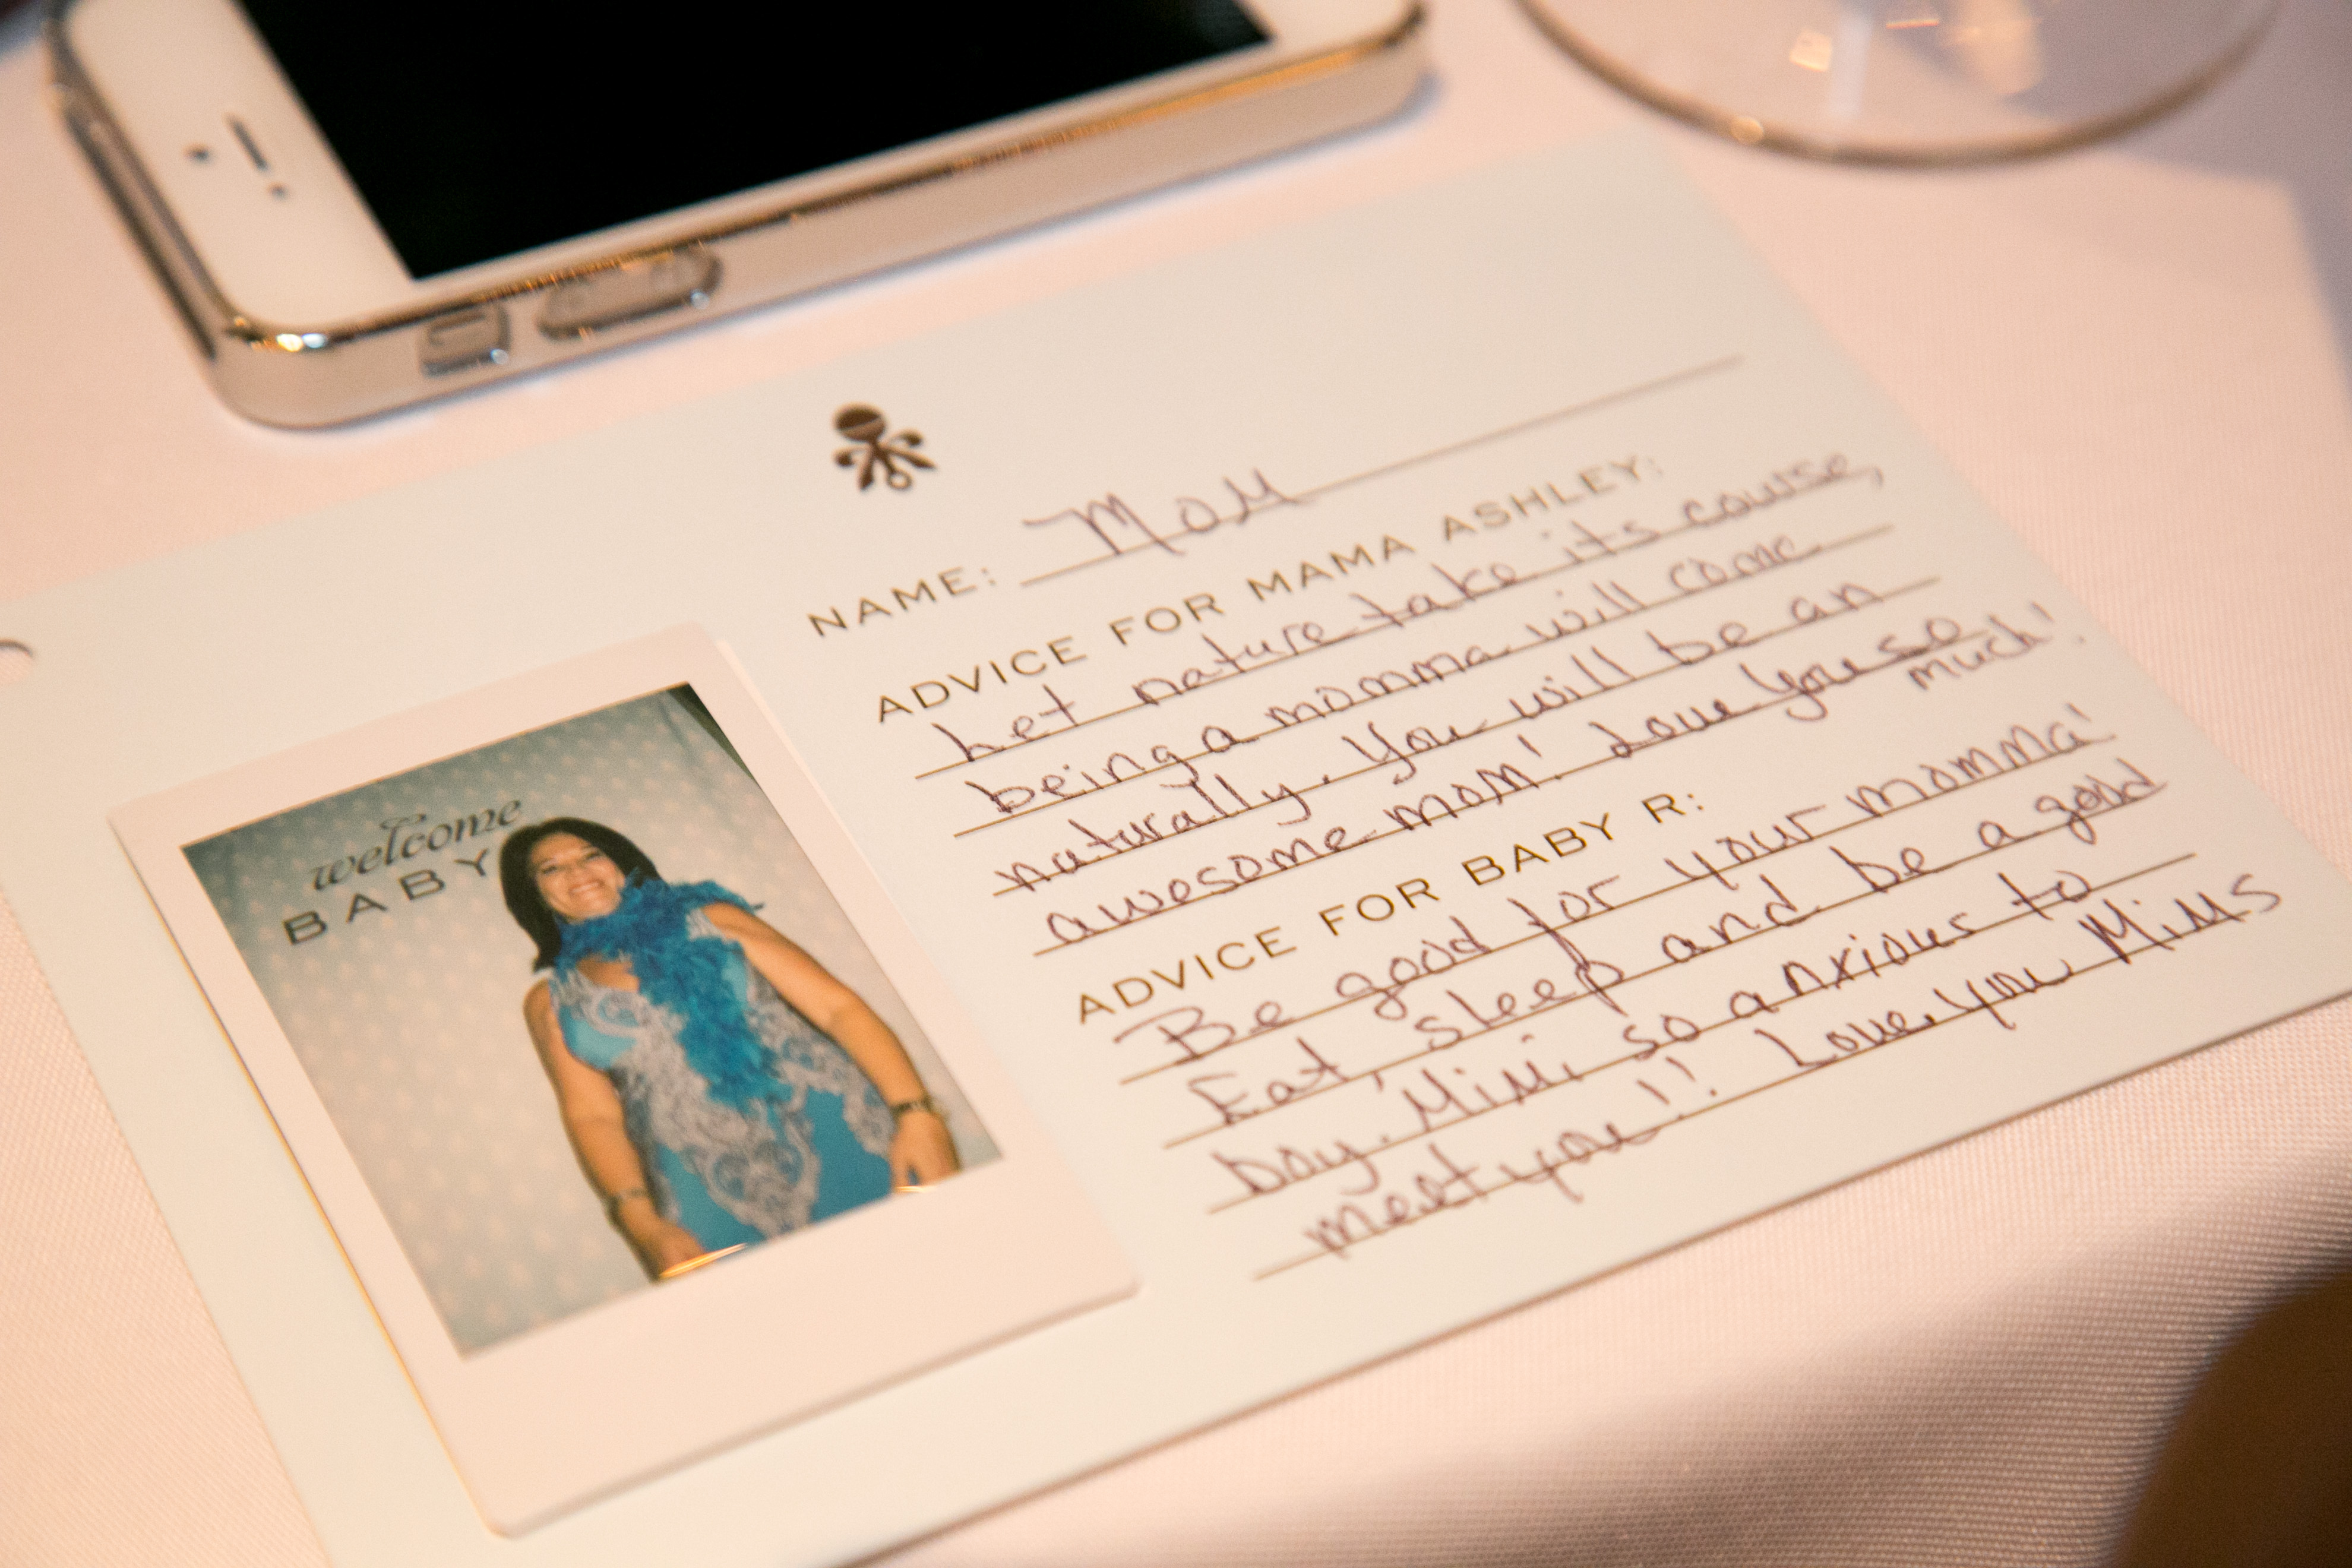 welcome
BABY
NAME: Mom
ADVICE FOR MAMA ASHLEY:
Let nature take its course,
being a momma will come
naturally. You will be an
awesome mom! Love you so
much!
ADVICE FOR BABY R:
Be good for your momma!
Eat, sleep and be a good
boy. MiMi so anxious to
meet you!! Love you MiMS